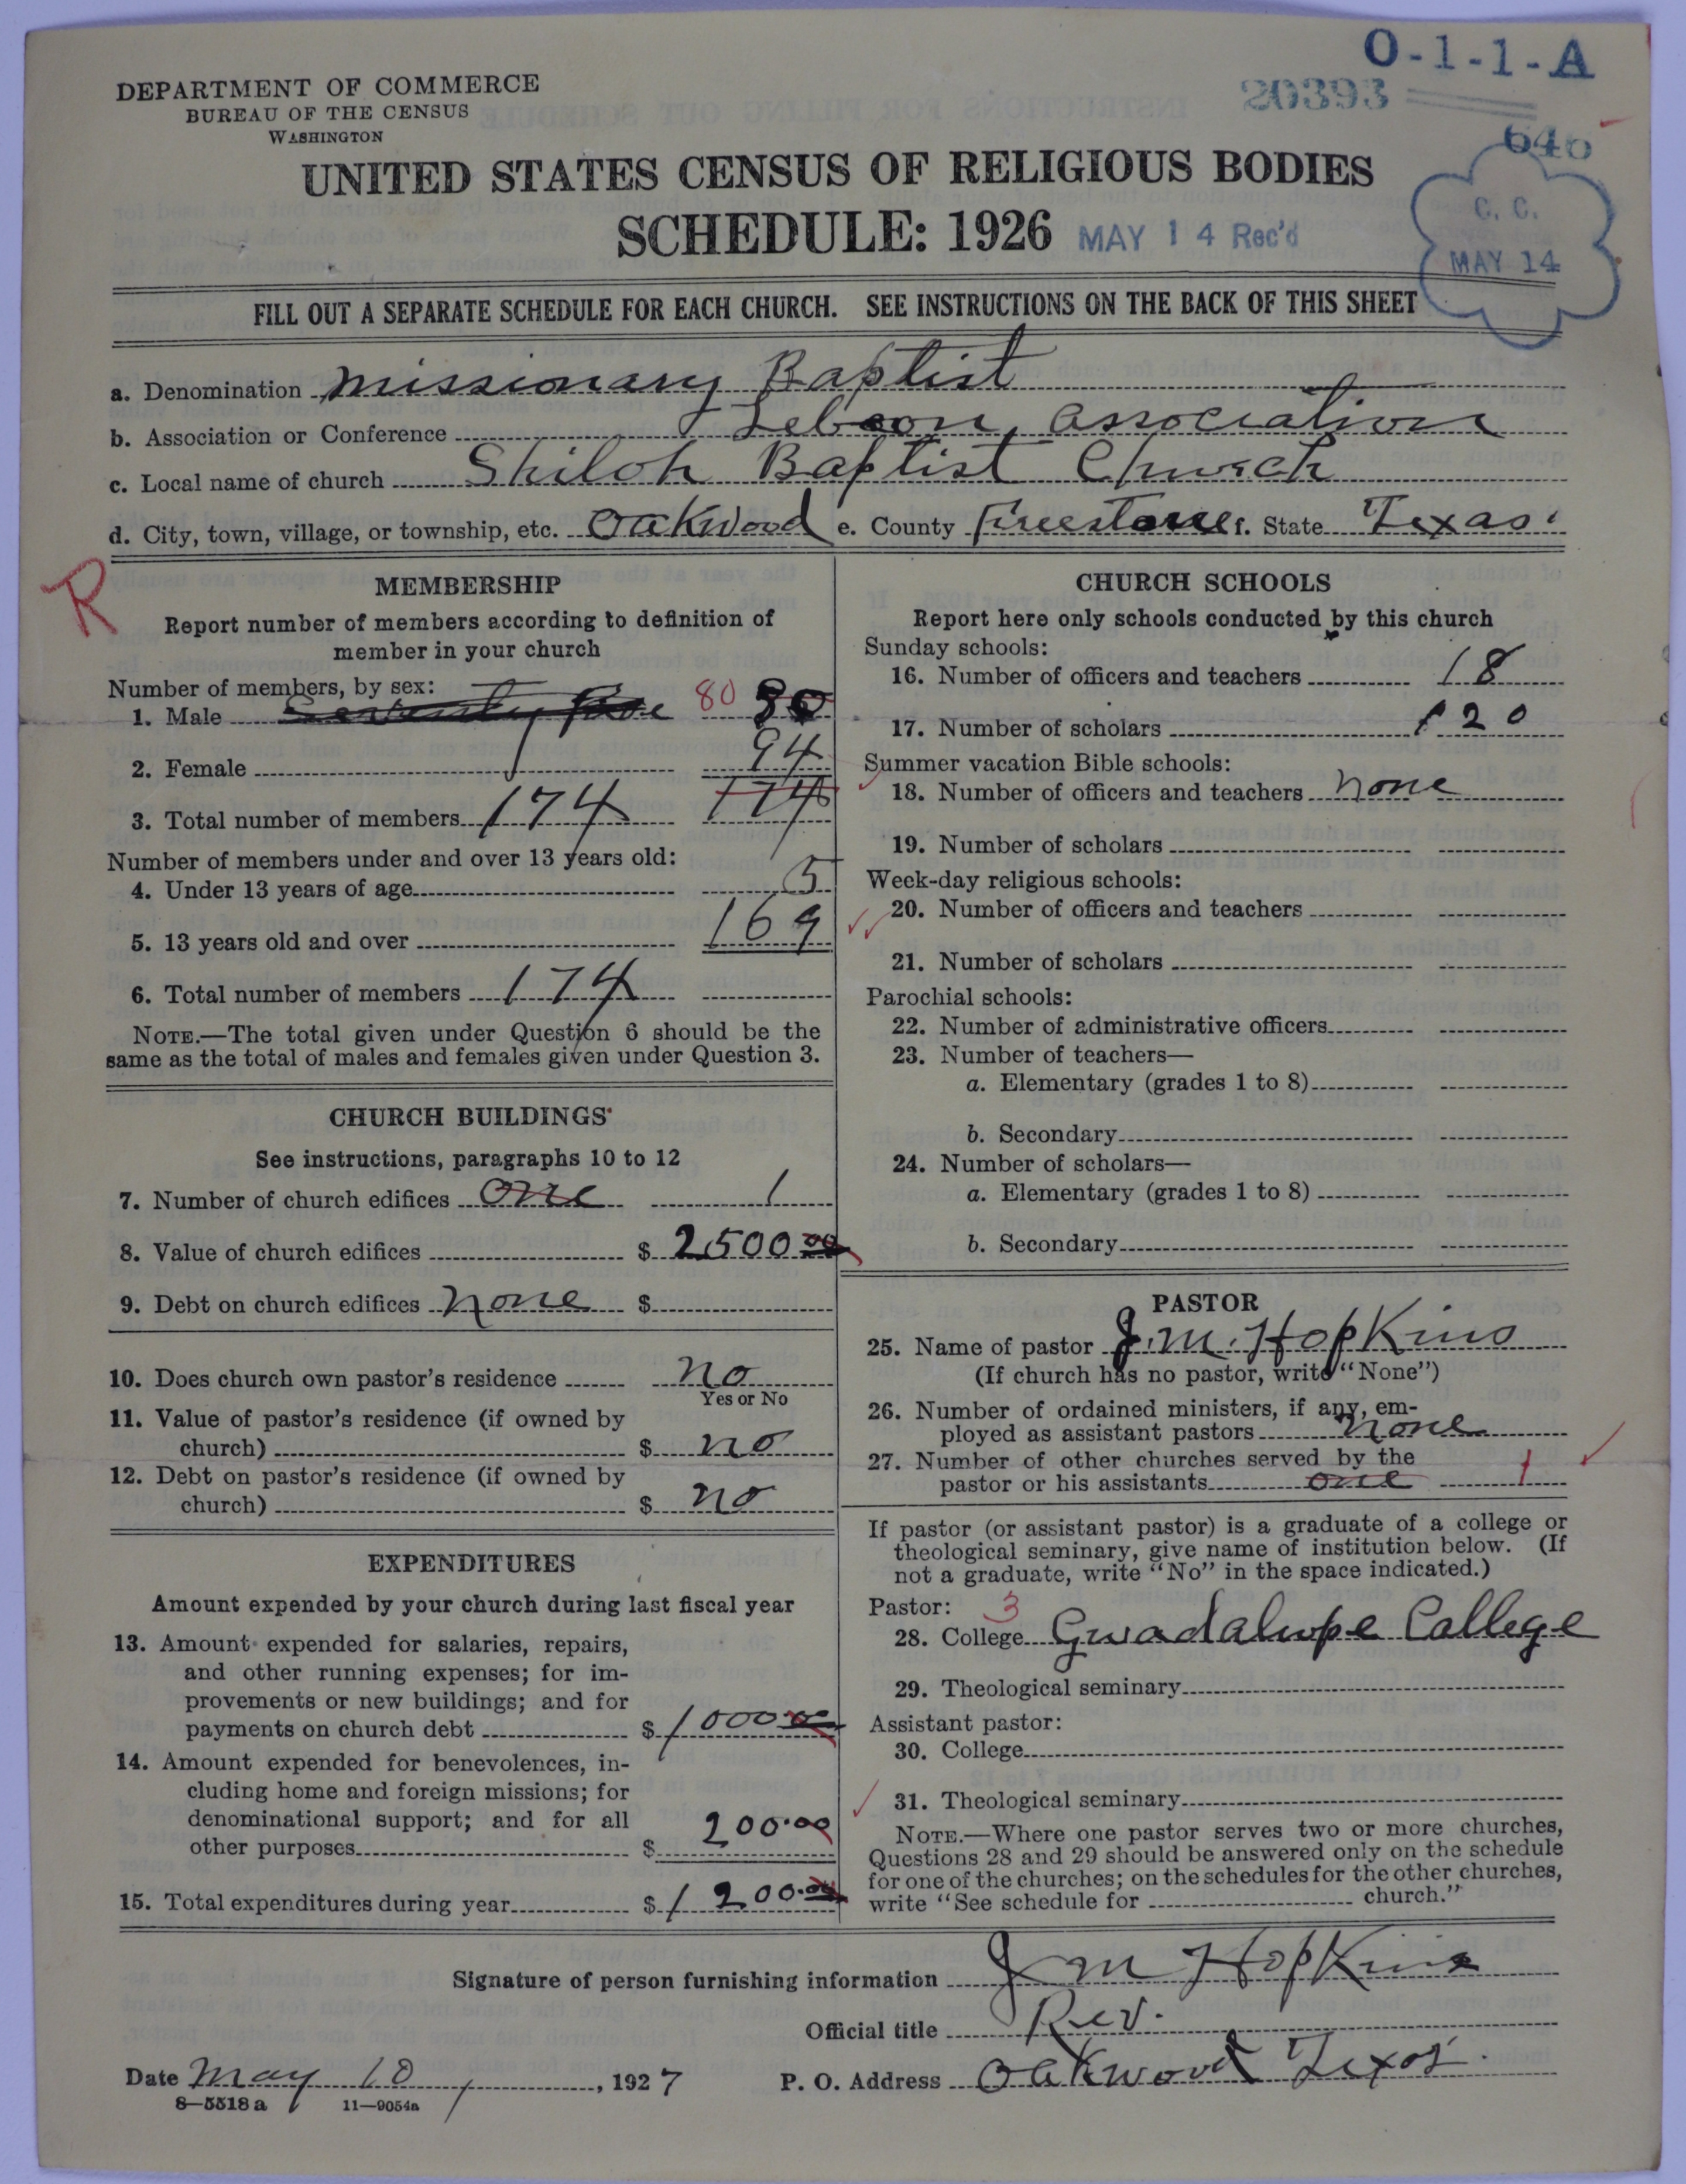 O-1-1-A
DEPARTMENT OF COMMERCE
20393
BUREAU OF THE CENSUS
WASHINGTON
646
UNITED STATES CENSUS OF RELIGIOUS BODIES
SCHEDULE: 1926 MAY 14 Rec'd
C. C.
MAY 14
FILL OUT A SEPARATE SCHEDULE FOR EACH CHURCH. SEE INSTRUCTIONS ON THE BACK OF THIS SHEET
a. Denomination Missionary Baptist
b. Association or Conference Lebanon Association
c. Local name of church Shiloh Baptist Church
d. City, town, village, or township, etc. Oakwood e. County Freestone f. State Texas.
R
MEMBERSHIP
Report number of members according to definition of
member in your church
Number of members, by sex:
1. Male Seventy five 80 80
2. Female 94
3. Total number of members 174 174
Number of members under and over 13 years old:
4. Under 13 years of age 5
5. 13 years old and over 169
6. Total number of members 174
NOTE.—The total given under Question 6 should be the
same as the total of males and females given under Question 3.
CHURCH BUILDINGS
See instructions, paragraphs 10 to 12
7. Number of church edifices one 1
8. Value of church edifices $ 2500 00
9. Debt on church edifices none $
10. Does church own pastor's residence no
Yes or No
11. Value of pastor's residence (if owned by
church) $ no
12. Debt on pastor's residence (if owned by
church) $ no
EXPENDITURES
Amount expended by your church during last fiscal year
13. Amount expended for salaries, repairs,
and other running expenses; for im-
provements or new buildings; and for
payments on church debt $ 1000 00
14. Amount expended for benevolences, in-
cluding home and foreign missions; for
denominational support; and for all
other purposes $ 200.00
15. Total expenditures during year $ 1200.00
CHURCH SCHOOLS
Report here only schools conducted by this church
Sunday schools:
16. Number of officers and teachers 18
17. Number of scholars 120
Summer vacation Bible schools:
18. Number of officers and teachers none
19. Number of scholars
Week-day religious schools:
20. Number of officers and teachers
21. Number of scholars
Parochial schools:
22. Number of administrative officers
23. Number of teachers—
a. Elementary (grades 1 to 8)
b. Secondary
24. Number of scholars—
a. Elementary (grades 1 to 8)
b. Secondary
PASTOR
25. Name of pastor J. M. Hopkins
(If church has no pastor, write "None")
26. Number of ordained ministers, if any, em-
ployed as assistant pastors none
27. Number of other churches served by the
pastor or his assistants one 1
If pastor (or assistant pastor) is a graduate of a college or
theological seminary, give name of institution below. (If
not a graduate, write "No" in the space indicated.)
Pastor: 3
28. College Gwadalupe College
29. Theological seminary
Assistant pastor:
30. College
31. Theological seminary
NOTE.—Where one pastor serves two or more churches,
Questions 28 and 29 should be answered only on the schedule
for one of the churches; on the schedules for the other churches,
write "See schedule for church."
Signature of person furnishing information J M Hopkins
Official title Rev.
Date May 10, 1927 P. O. Address Oakwood Texas.
8—5518a 11—9054a